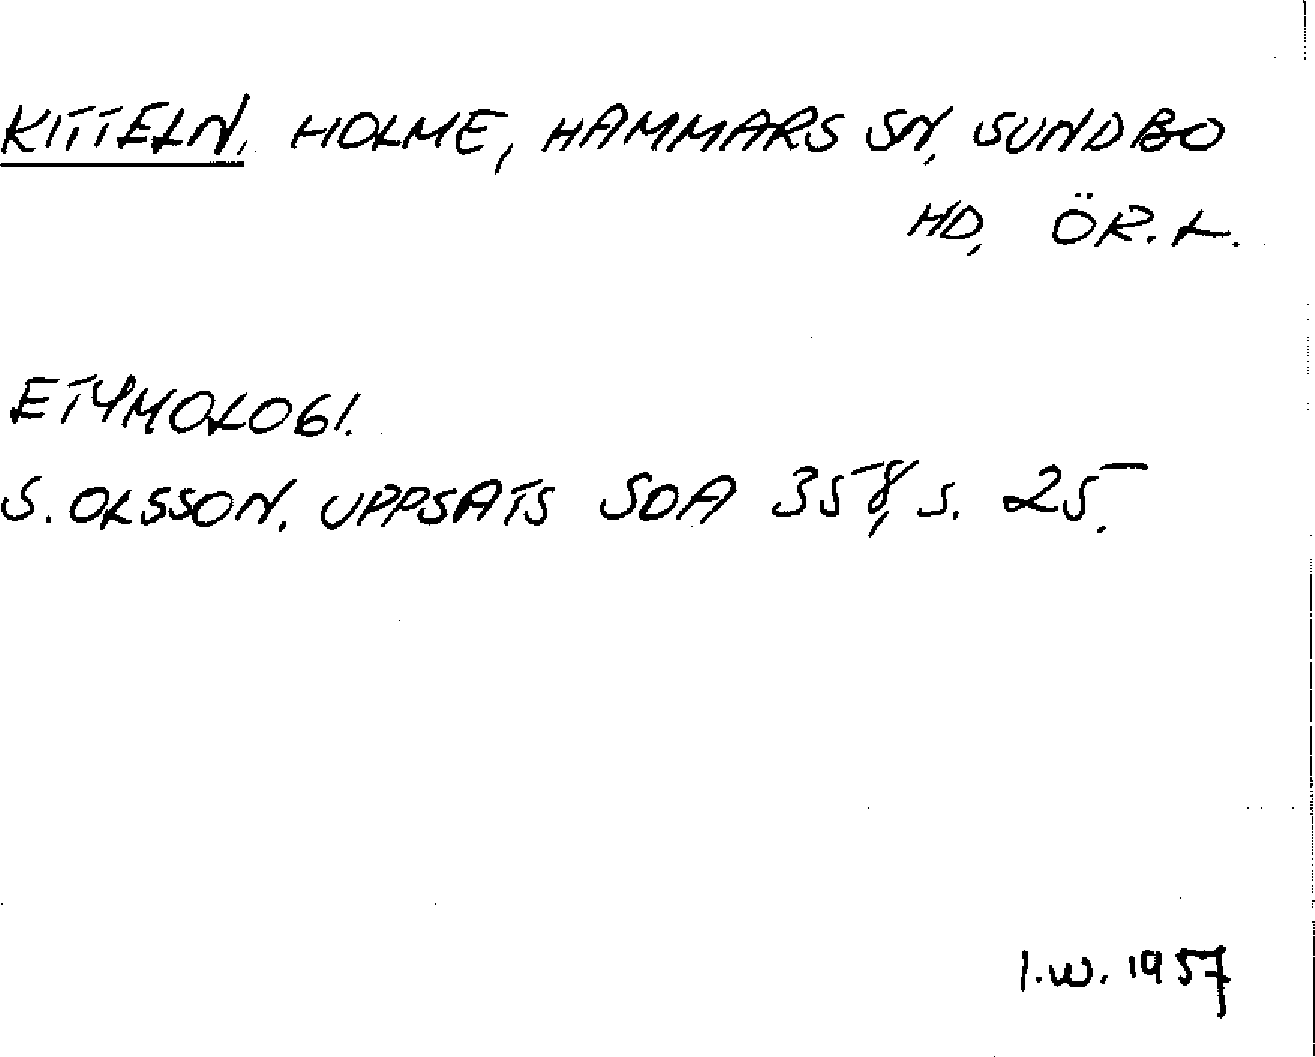 KITTELN, HOLME, HAMMARS SN, SUNDBO
HD, ÖR. L.
ETYMOLOGI.
S. OLSSON. UPPSATS SOA 358, s. 25.
I.W. 1957